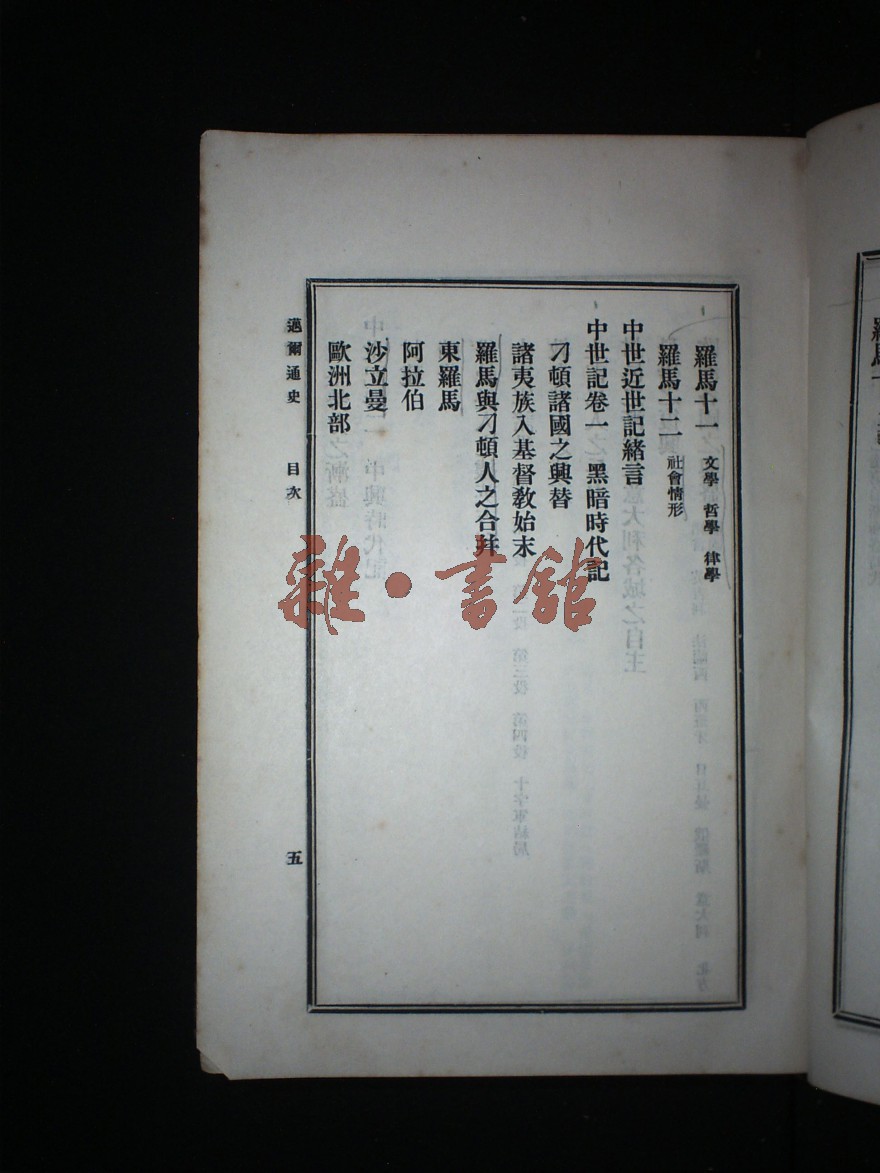 羅馬十一 文學 哲學 律學
羅馬十二 社會情形
中世近世記緒言
中世記卷一 黑暗時代記
刁頓諸國之興替
諸夷族入基督敎始末
羅馬與刁頓人之合幷
東羅馬
阿拉伯
沙立曼
歐洲北部
邁爾通史 目次 五
雜·書館